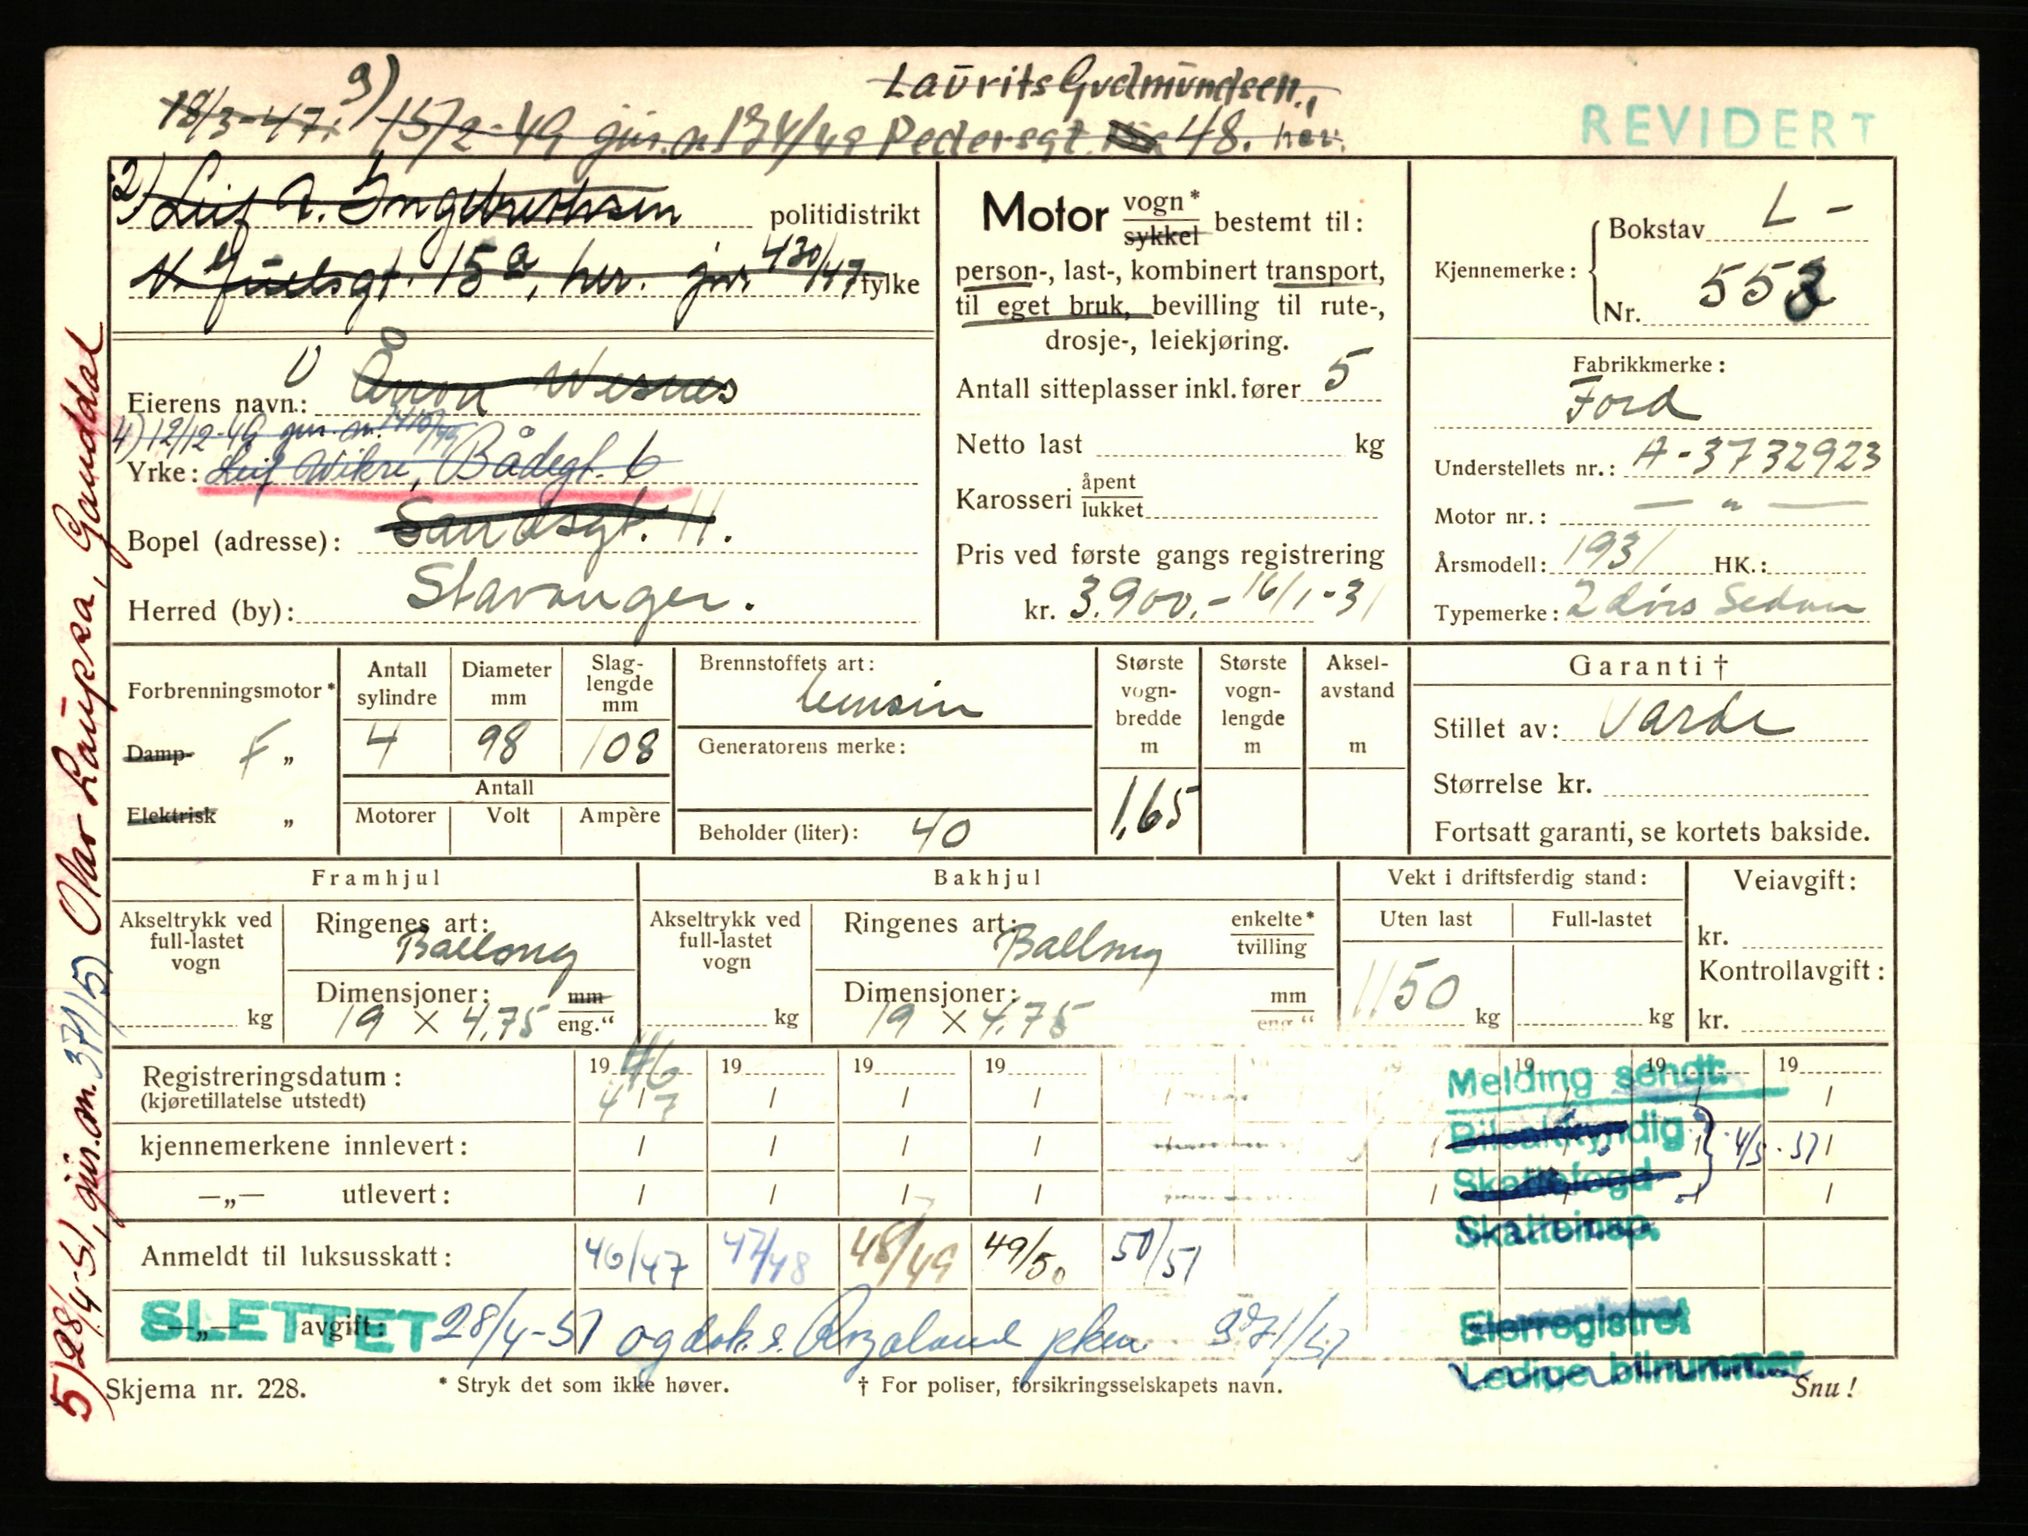 Laurits Gudmundsen,
18/3-47. 3) 15/2-49 jnr. 174/49 Pedersgt. 48. her.
REVIDERT
2) Leif A. Ingebrethsen politidistrikt
N. Juelsgt. 15a, her. jnr. 430/47 fylke
Motor vogn* sykkel bestemt til:
person-, last-, kombinert transport,
til eget bruk, bevilling til rute-,
drosje-, leiekjøring.
Antall sitteplasser inkl. fører 5
Netto last kg
Karosseri åpent lukket
Pris ved første gangs registrering
kr. 3.900,- 16/1-31
Kjennemerke: Bokstav L -
Nr. 553
Fabrikkmerke:
Ford
Understellets nr.: A-3732923
Motor nr.: — " —
Årsmodell: 1931 HK.:
Typemerke: 2 dørs Sedan
1) Wesnes
Eierens navn:
4) 12/12-49 jnr.
Yrke: Leif Wikre, Bådegt. 6
Bopel (adresse): Sandsgt. 11.
Herred (by): Stavanger.
Forbrenningsmotor*
Damp- F „
Elektrisk „
Antall sylindre
4
Diameter mm
98
Slag- lengde mm
108
Antall
Motorer Volt Ampère
Brennstoffets art:
bensin
Generatorens merke:
Beholder (liter): 40
Største vogn- bredde m
1,65
Største vogn- lengde m
Aksel- avstand m
Garanti †
Stillet av: Varde
Størrelse kr.
Fortsatt garanti, se kortets bakside.
Framhjul
Akseltrykk ved full-lastet vogn
kg
Ringenes art:
Ballong
Dimensjoner: mm
19 × 4,75 eng."
Bakhjul
Akseltrykk ved full-lastet vogn
kg
Ringenes art: enkelte* tvilling
Ballong
Dimensjoner: mm
19 × 4,75 eng."
Vekt i driftsferdig stand:
Uten last Full-lastet
1150 kg kg
Veiavgift:
kr.
Kontrollavgift:
kr.
Registreringsdatum: 1946 19 19 19 19 19 19
(kjøretillatelse utstedt) 4/7 / / / / / /
kjennemerkene innlevert: / / / / / / /
—„— utlevert: / / / / / / /
Anmeldt til luksusskatt: 46/47 47/48 48/49 49/50 50/51
—„— avgift:
SLETTET 28/4-51 371/51
Melding sendt:
Bilsakkyndig
Skattefogd
4/5-51
Skatteinsp.
Eierregistret
Ledige bilnummer
Skjema nr. 228. * Stryk det som ikke høver. † For poliser, forsikringsselskapets navn. Snu!
5) 28/4-51, jnr. 371/51 Ganddal